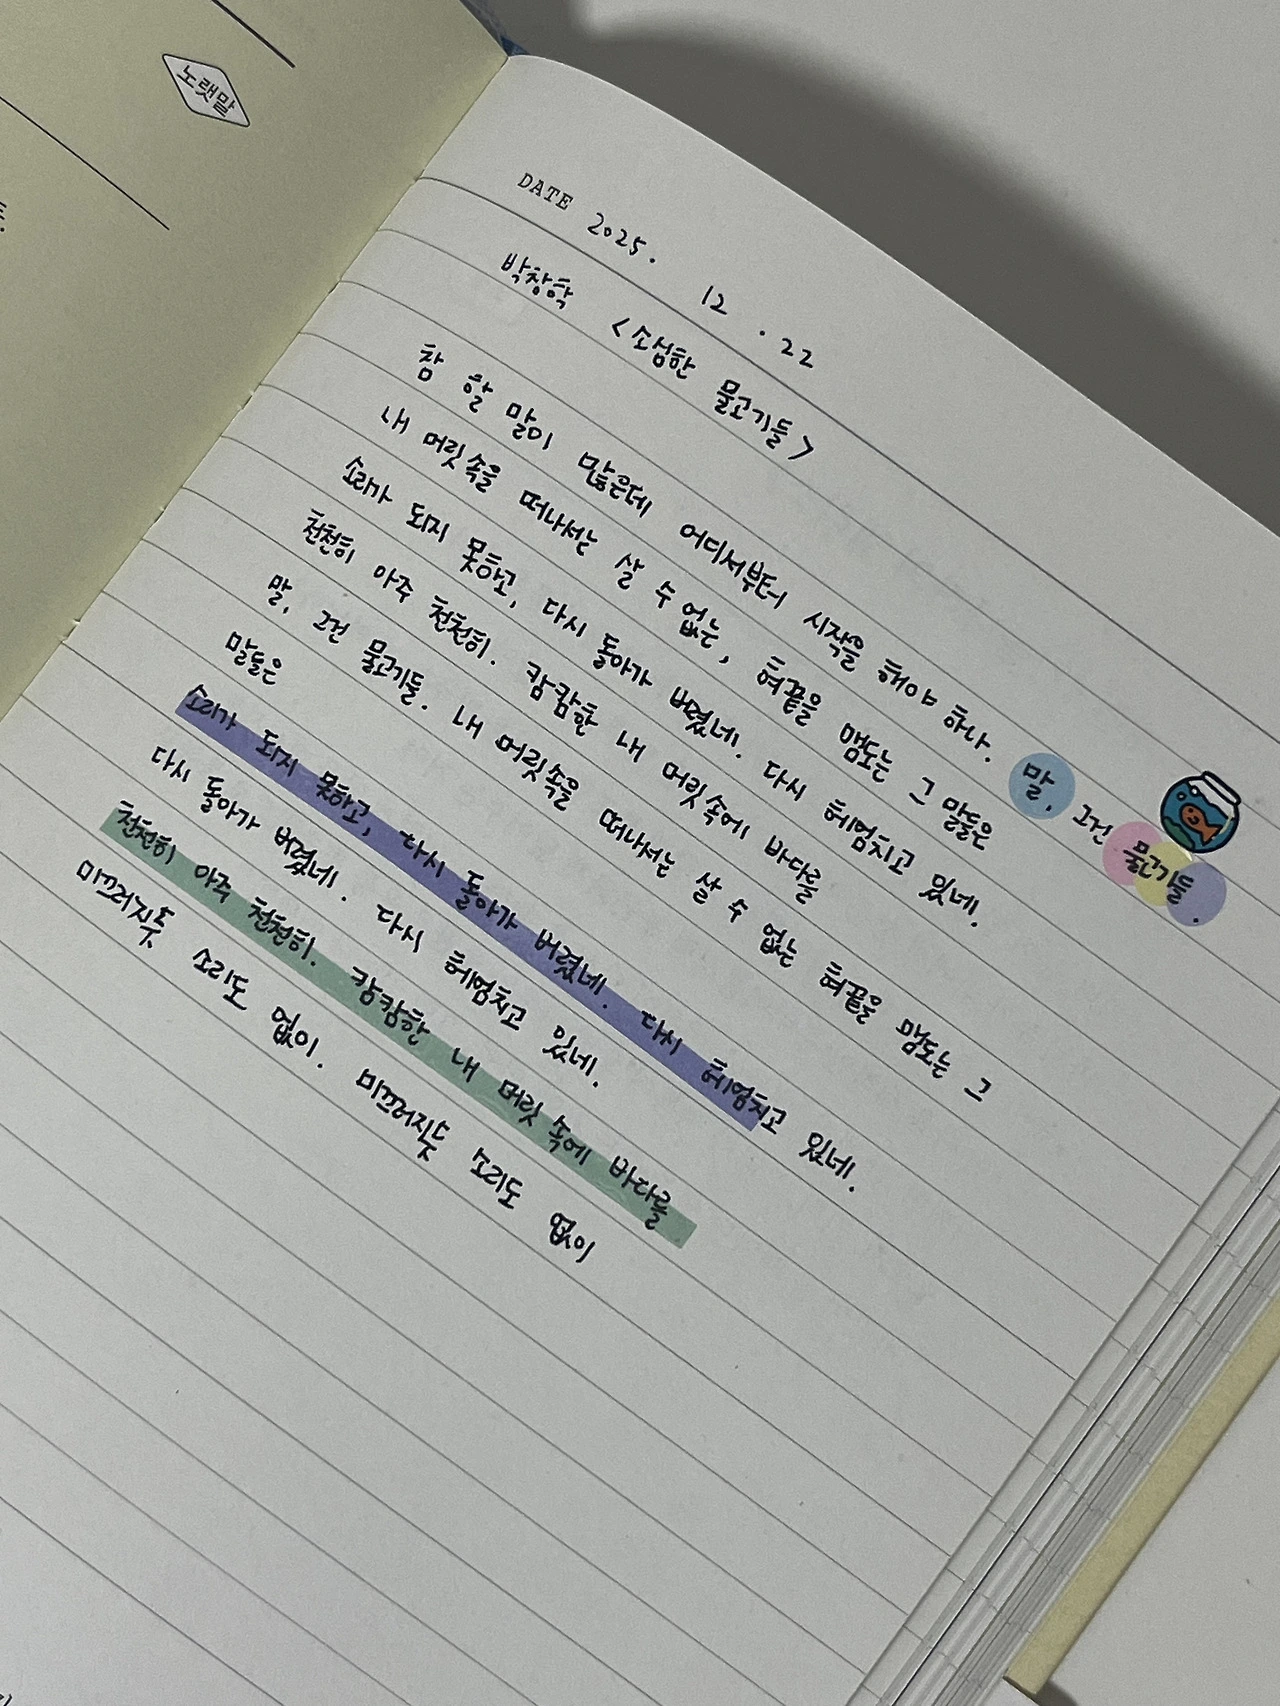 노랫말
DATE 2025. 12 . 22
박창학 <소심한 물고기들>
참 할 말이 많은데 어디서부터 시작을 해야 하나. 말, 그건 물고기들.
내 머릿속을 떠나서는 살 수 없는, 혀끝을 맴도는 그 말들은
소리가 되지 못하고, 다시 돌아가 버렸네. 다시 헤엄치고 있네.
천천히 아주 천천히. 캄캄한 내 머릿속에 바다를
말, 그건 물고기들. 내 머릿속을 떠나서는 살 수 없는 혀끝을 맴도는 그
말들은
소리가 되지 못하고, 다시 돌아가 버렸네. 다시 헤엄치고 있네.
다시 돌아가 버렸네. 다시 헤엄치고 있네.
천천히 아주 천천히. 캄캄한 내 머릿 속에 바다를
미끄러지듯 소리도 없이. 미끄러지듯 소리도 없이